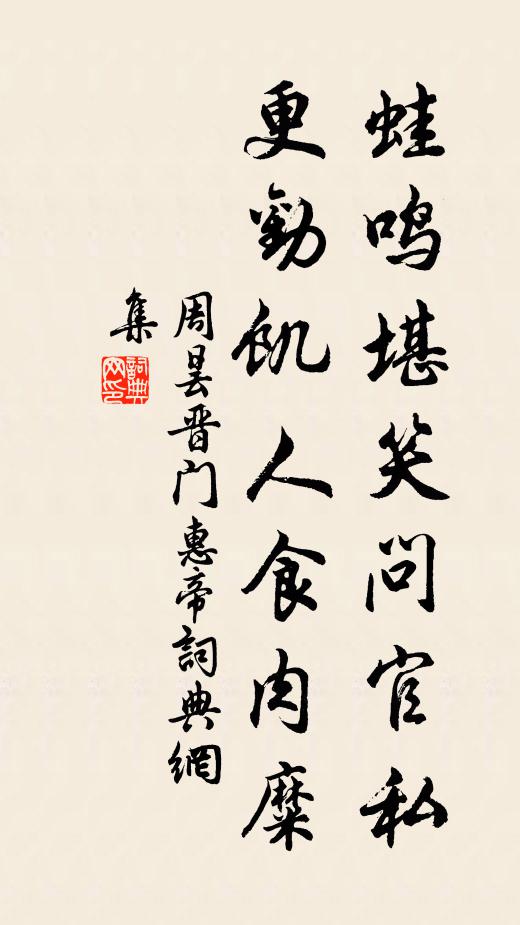 蛙鸣堪笑问官私
更勸飢人食肉糜
周昙晋门惠帝詞典網
集
詞典网印